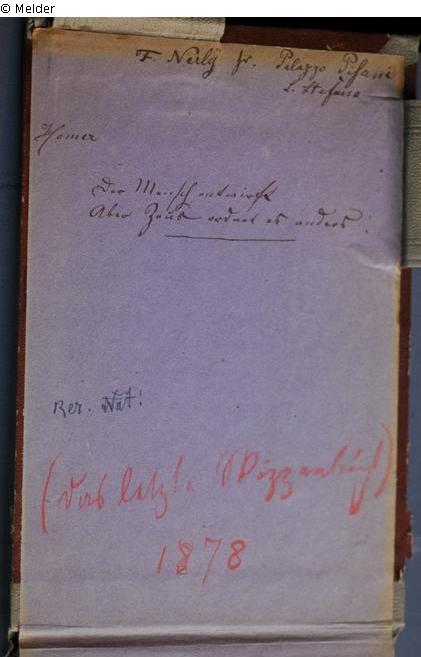 © Melder
F. Neily jr. Palazzo Pisani
S. Stefano
Homer
Der Mensch entwirft
Aber Zeus ordnet es anders!
Rer. Nat:
(das letzte Skizzenbuch)
1878